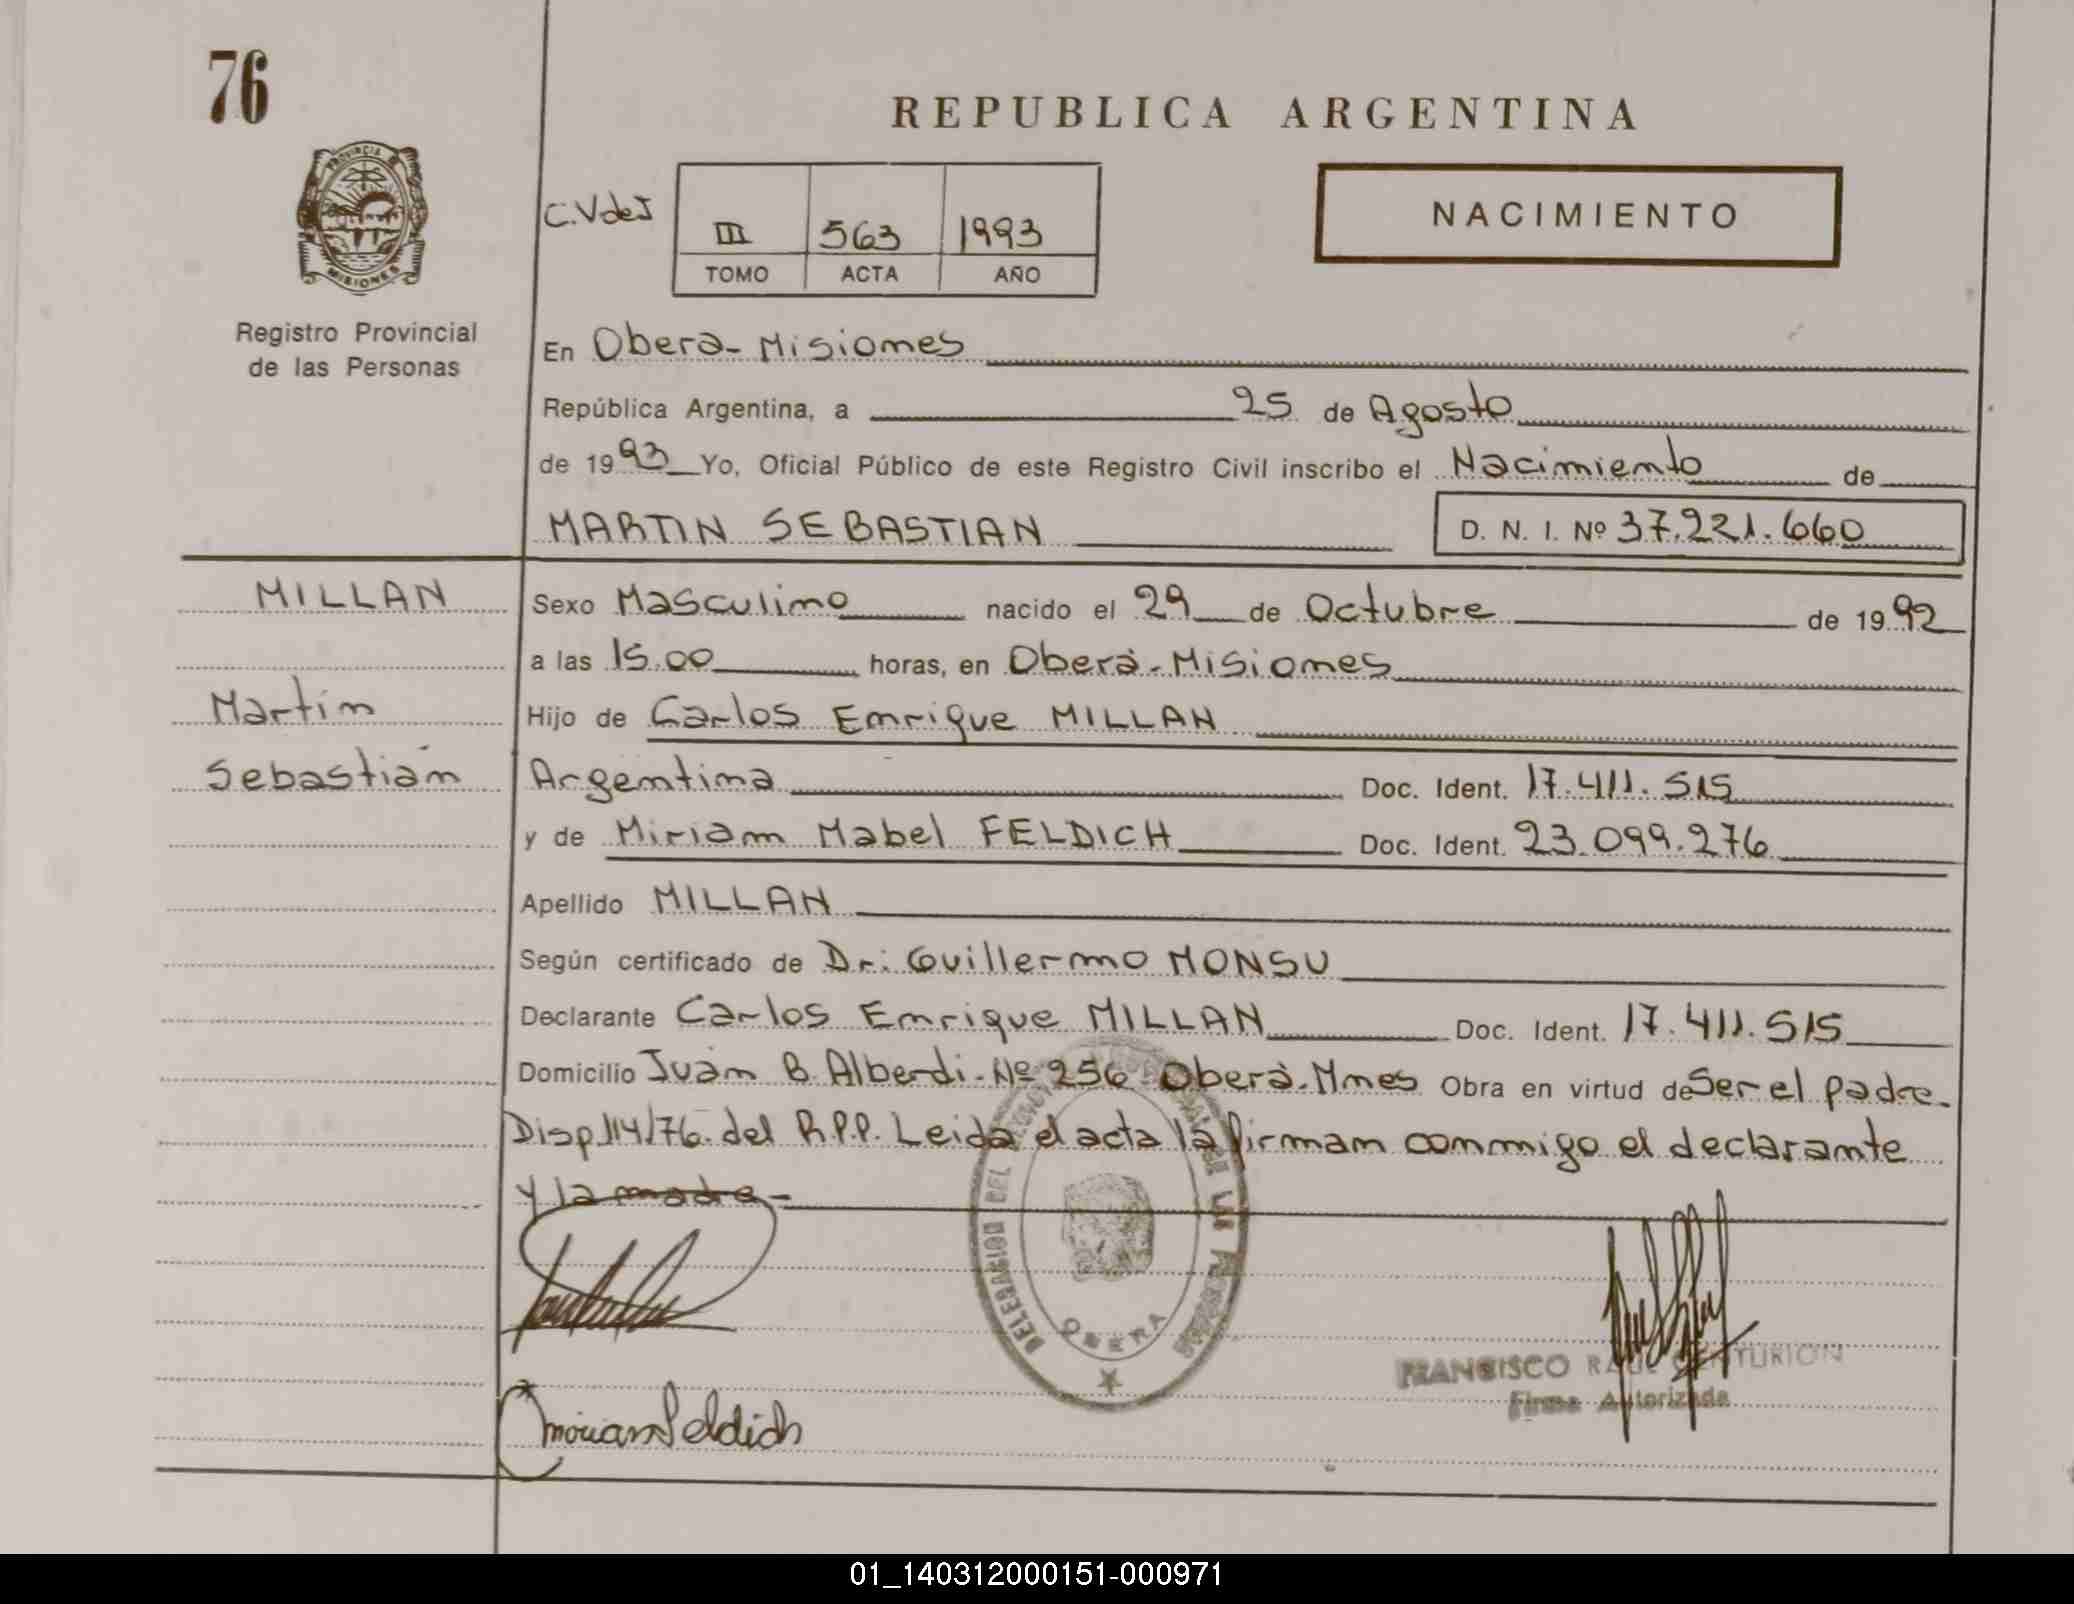 76
REPUBLICA ARGENTINA
PROVINCIA DE
MISIONES
Registro Provincial
de las Personas
C.VdeJ
III 563 1993
TOMO ACTA AÑO
NACIMIENTO
En Oberá-Misiones
República Argentina, a 25 de Agosto
de 1993 Yo, Oficial Público de este Registro Civil inscribo el Nacimiento de
MARTIN SEBASTIAN
D. N. I. Nº 37.221.660
MILLAN
Martin
Sebastián
Sexo Masculino nacido el 29 de Octubre de 1992
a las 15.00 horas, en Oberá-Misiones
Hijo de Carlos Enrique MILLAN
Argentina Doc. Ident. 17.411.515
y de Miriam Mabel FELDICH Doc. Ident. 23.099.276
Apellido MILLAN
Según certificado de Dr: Guillermo MONSU
Declarante Carlos Enrique MILLAN Doc. Ident. 17.411.515
Domicilio Juan B. Alberdi-Nº 256 Oberá-Mnes Obra en virtud de Ser el padre-
Disp 114/76. del R.P.P. Leida el acta la firman conmigo el declarante
y la madre-
DELEGACION DEL REGISTRO PROVINCIAL DE LAS PERSONAS
OBERA
FRANCISCO RAUL CENTURION
Firma Autorizada
Miriam Feldich
01_140312000151-000971